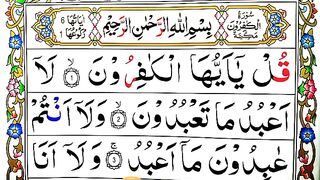 سُوْرَةُ الْكٰفِرُوْنَ مَكِّيَّةٌ
بِسْمِ اللّٰهِ الرَّحْمٰنِ الرَّحِيْمِ
اٰيَاتُهَا ٦ رُكُوْعُهَا ١
قُلْ يٰۤاَيُّهَا الْكٰفِرُوْنَ ۙ﴿۱﴾ لَاۤ
اَعْبُدُ مَا تَعْبُدُوْنَ ۙ﴿۲﴾ وَلَاۤ اَنْتُمْ
عٰبِدُوْنَ مَاۤ اَعْبُدُ ۚ﴿۳﴾ وَلَاۤ اَنَا